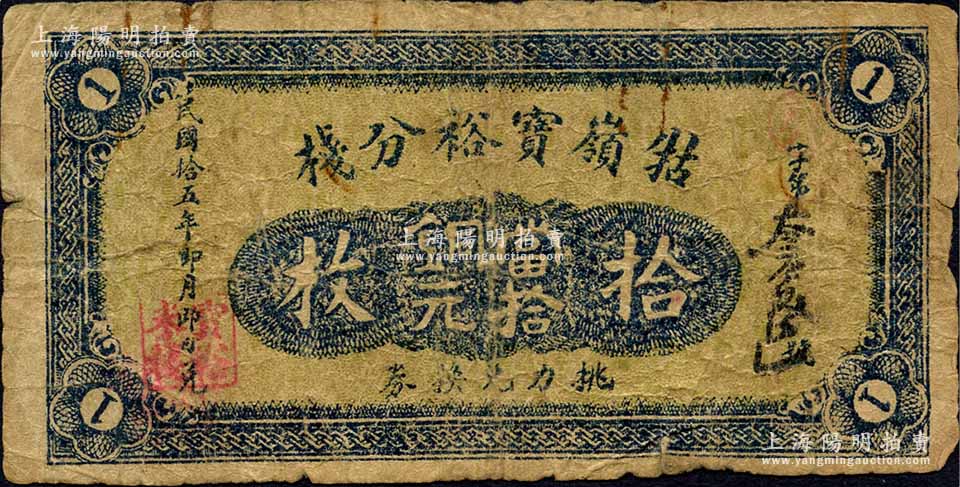 上海陽明拍賣
www.yangmingauction.com
1
1
牯嶺寶裕分棧
字第
叁
號
拾
當拾
銅元
枚
上海陽明拍賣
www.yangmingauction.com
挑力兌換券
民國拾五年卯月卯日兌
1
1
上海陽明拍賣
www.yangmingauction.com